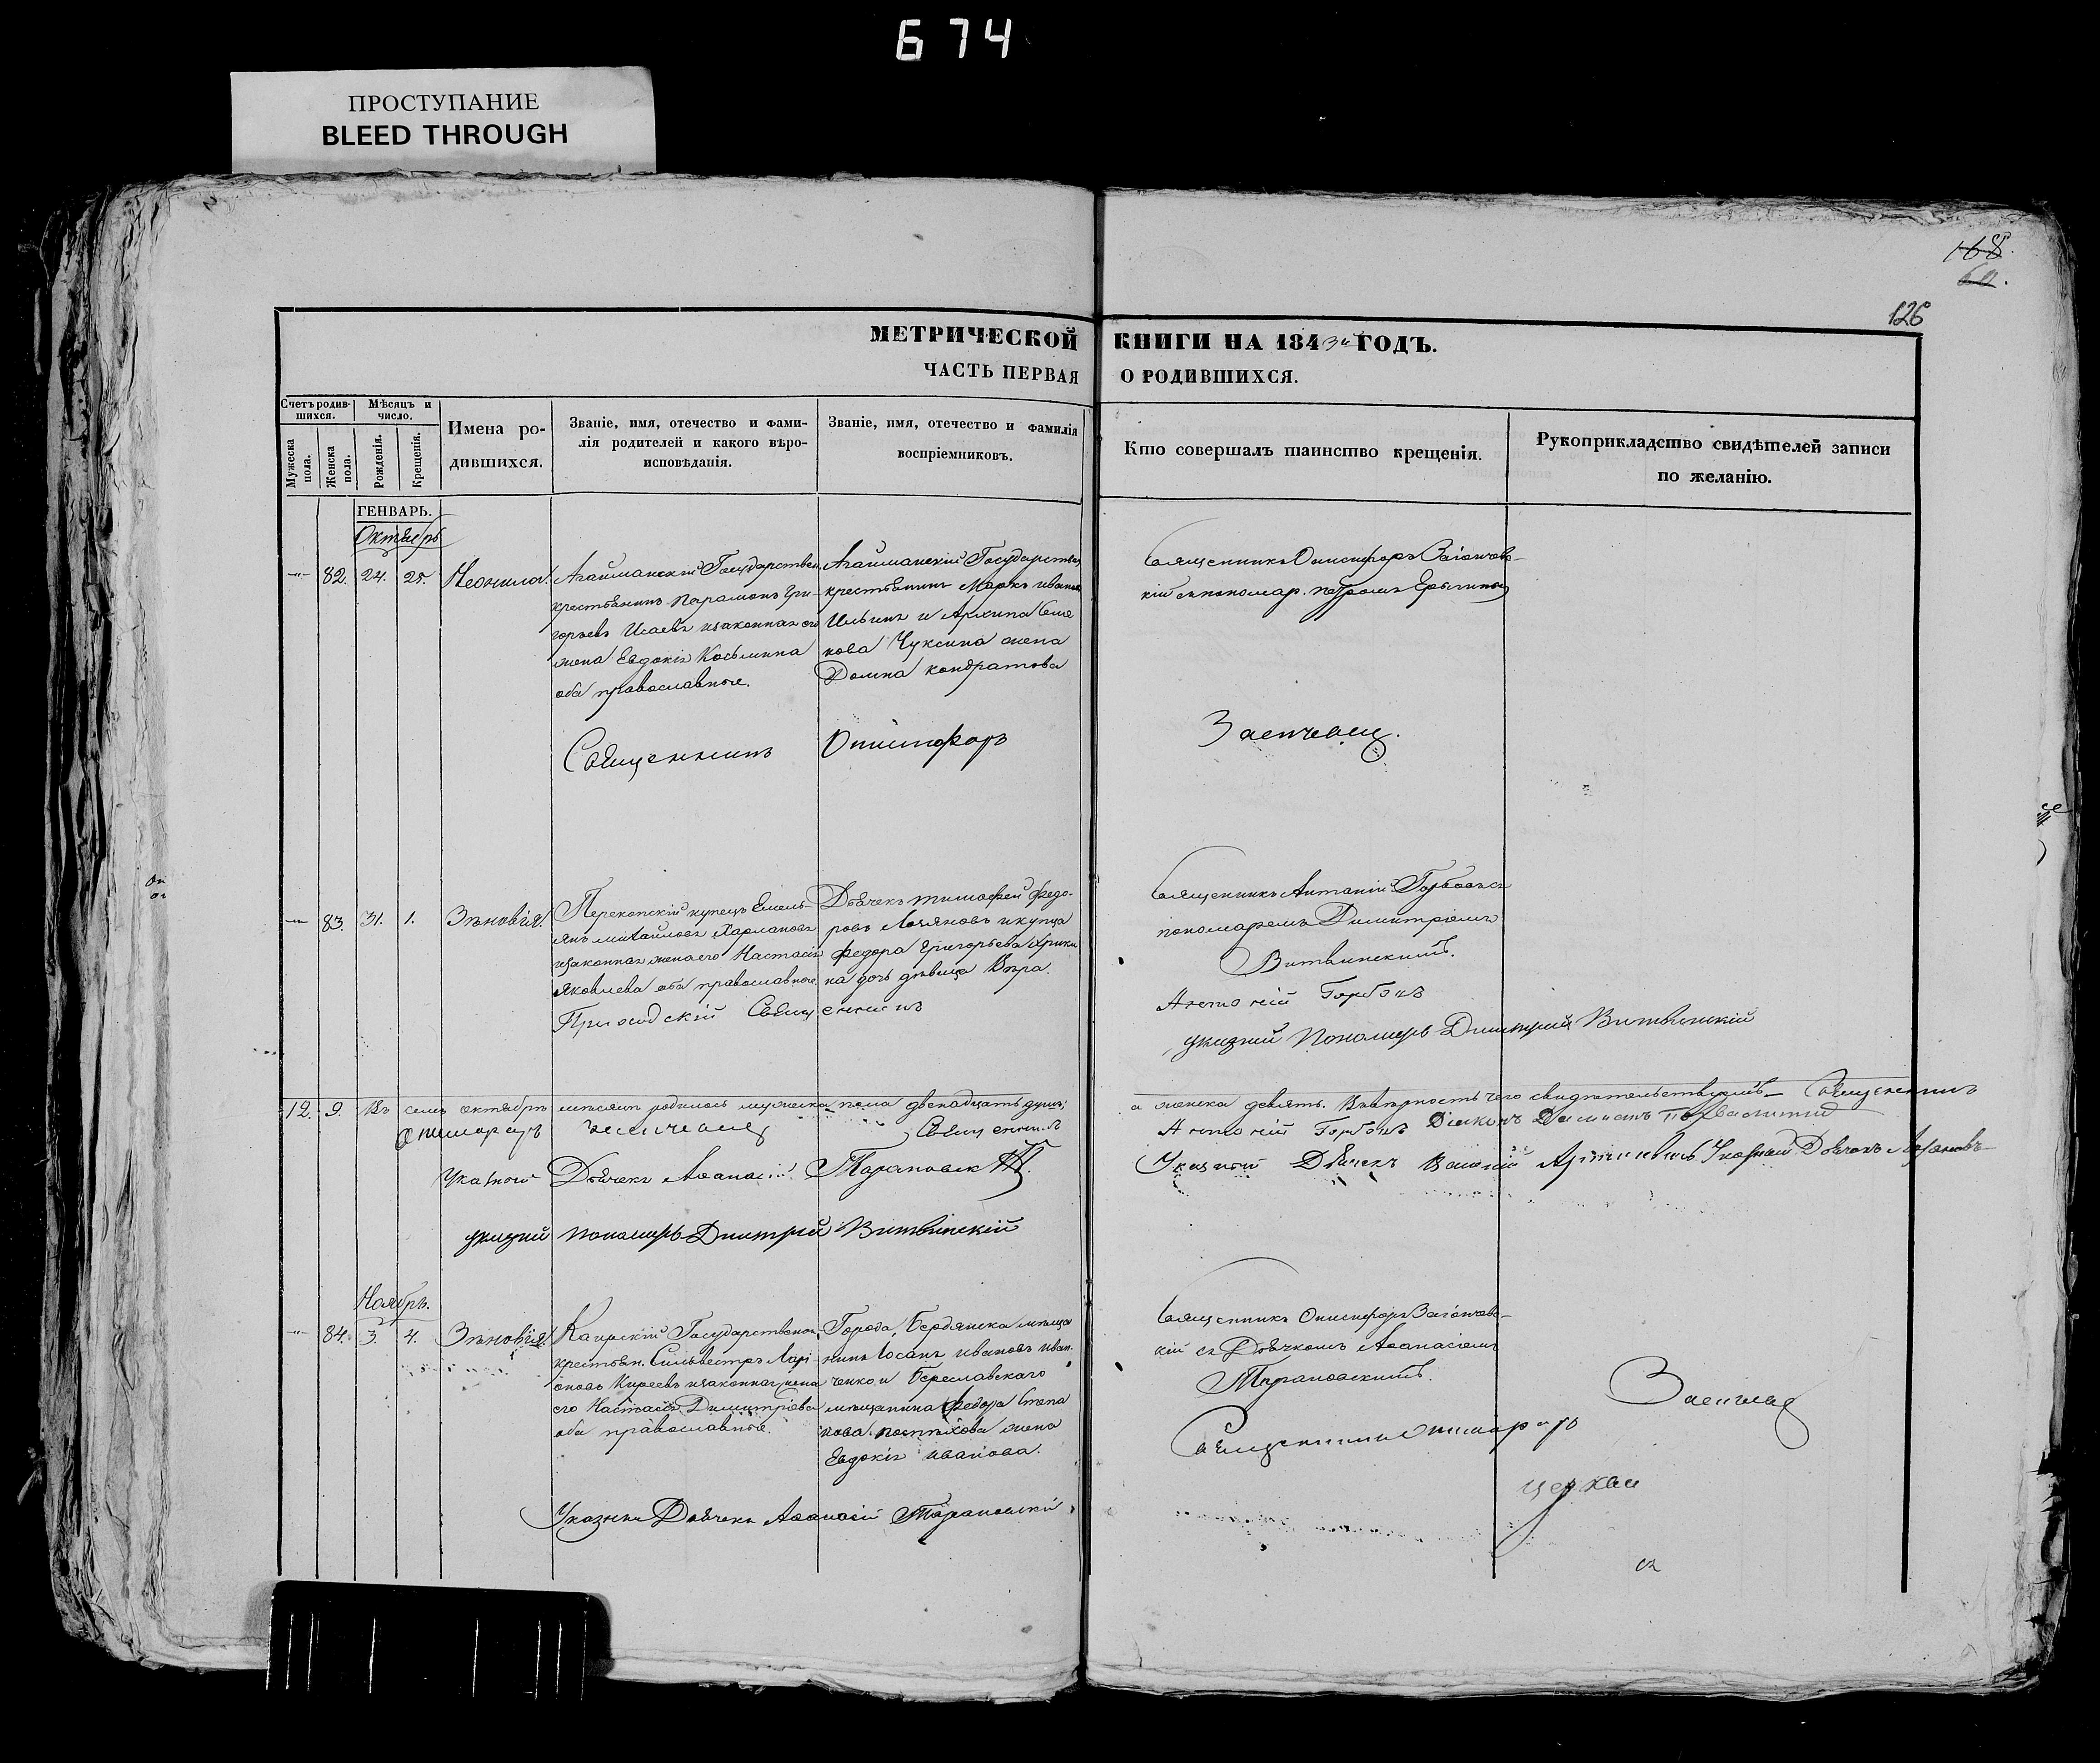 674
ПРОСТУПАНИЕ
BLEED THROUGH
168.
60.
126
МЕТРИЧЕСКОЙ КНИГИ НА 1843й ГОДЪ.
ЧАСТЬ ПЕРВАЯ О РОДИВШИХСЯ.
Счетъ родив-
шихся.
Мужеска
пола.
Женска
пола.
Мѣсяцъ и
число.
Рожденія.
Крещенія.
Имена ро-
дившихся.
Званіе, имя, отечество и фами-
лія родителей и какого вѣро-
исповѣданія.
Званіе, имя, отечество и фамилія
воспріемниковъ.
Кто совершалъ таинство крещенія.
Рукоприкладство свидѣтелей записи
по желанію.
ГЕНВАРЬ.
Октябрь
82. 24. 25. Неонила.
Агайманскій Государствен.
крестьянинъ Парамонъ Гри-
горьевъ Исаевъ изаконная его
жена Евдокія Косьмина
оба православные.
Агайманскій Государствен
крестьянинъ Маркъ Иванов
Ильинъ и Архипа Семе
нова Чуксина жена
Домна Кондратова
Священникъ Онисифоръ Заіончев-
кій съ пономар. Петромъ
Священникъ Онисифоръ
83. 31. 1. Зѣновія.
Перекопскій купецъ Емель-
янъ Михайловъ Харламовъ
изаконная жена его Настасія
Яковлева оба православные
Дьячекъ Тимофей Федо-
ровъ икупца
Федора Григорьева
на дочь дѣвица Вѣра.
Священникъ Антоній Горбовъ съ
пономаремъ Димитріемъ
Витвинскимъ.
Приходскій Священникъ
Антоній
указный Пономарь Дмитрий Витвинскій
12. 9. Въ семъ октябрѣ мѣсяцѣ родилось мужеска пола двенадцать душъ;
а женска девять. Въ вѣрность чего свидѣтельствуемъ Священникъ
Священникъ
Антоній Діяконъ
Указной Дьячекъ Аѳанасій Тарановскій.
Указной Дьячекъ Указный Дьячекъ
указный пономарь Дмитрий Витвинскій
Ноябрь.
84. 3. 4. Зѣновія.
Каирскій Государственои
крестьян. Сильвестръ Лари-
оновъ Киреевъ изаконная жена
его Настасія Димитріева
оба православные.
Города Бердянска мѣща
нинъ Ивановъ Иван.
ченко и Береславского
мѣщанина Федора Степа
нова жена
Евдокія Иванова.
Священникъ Онисифоръ Заіончев-
кій съ Дьячкомъ Аѳанасіемъ
Тарановскимъ.
Священникъ
Указный Дьячекъ Аѳанасій Тарановскій